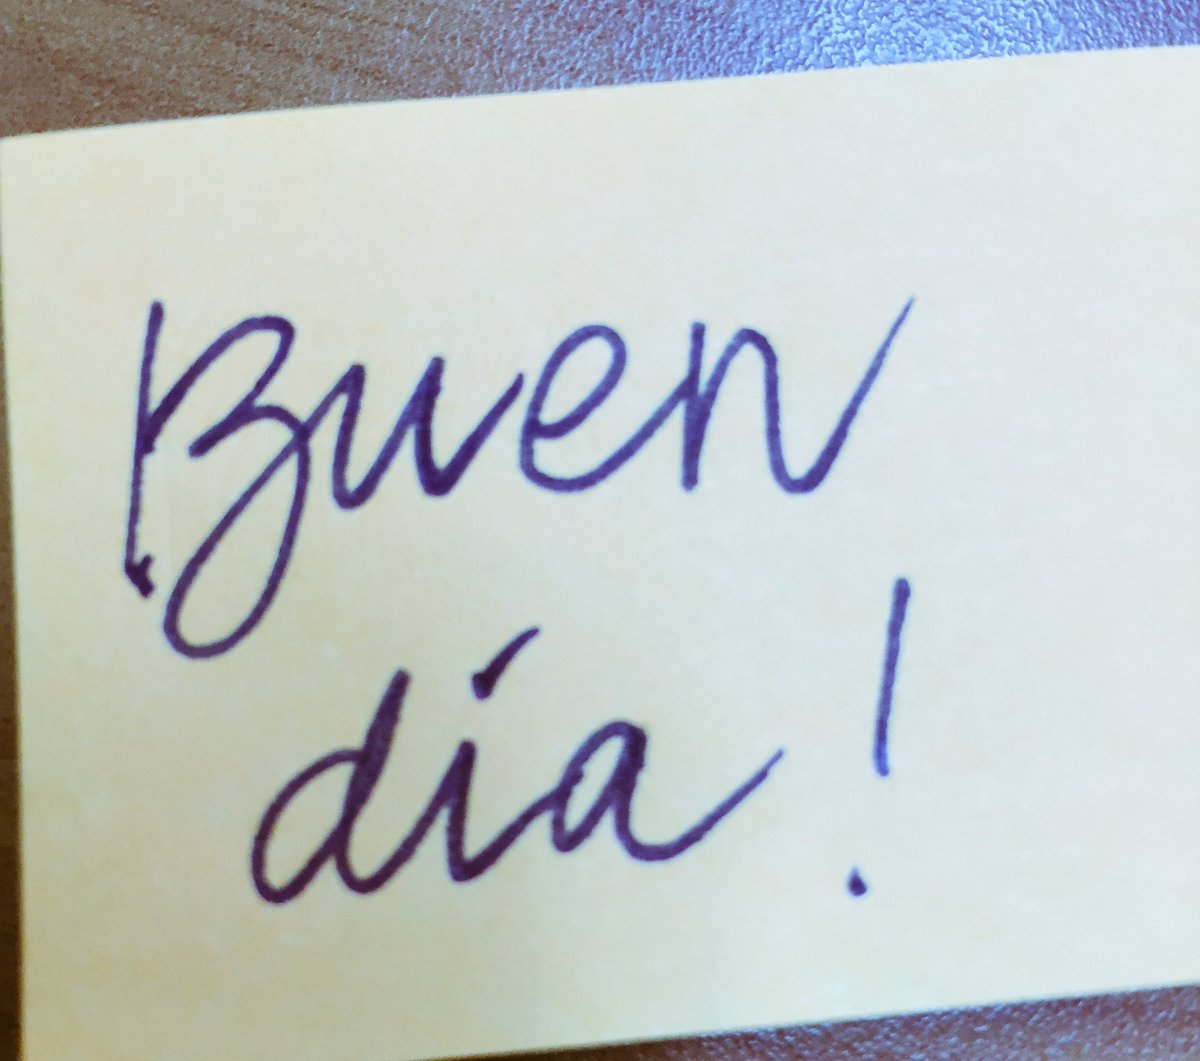 Buen
día!